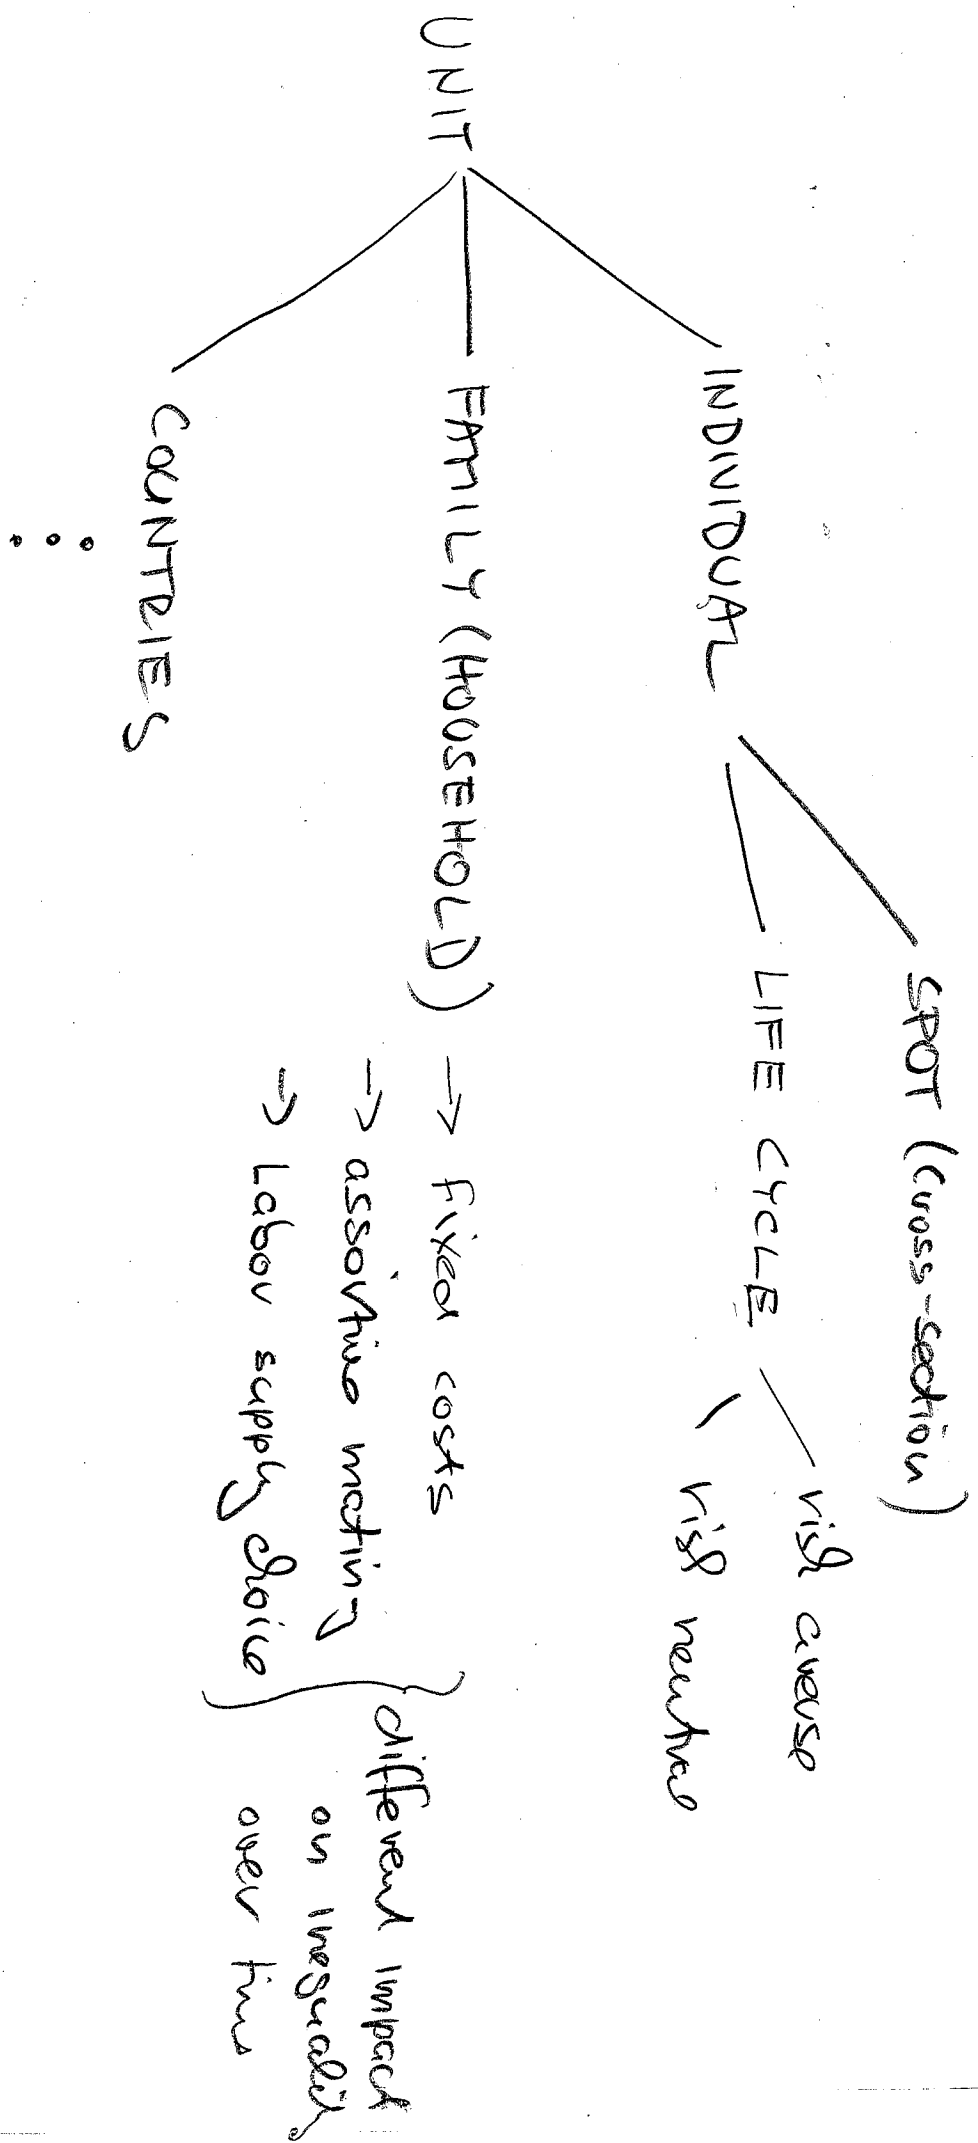 UNIT
INDIVIDUAL
SPOT (cross-section)
LIFE CYCLE
risk averse
risk neutral
FAMILY (HOUSEHOLD)
→ fixed costs
→ assortive mating
→ Labor supply choice
different impact
on inequality
over time
COUNTRIES
...